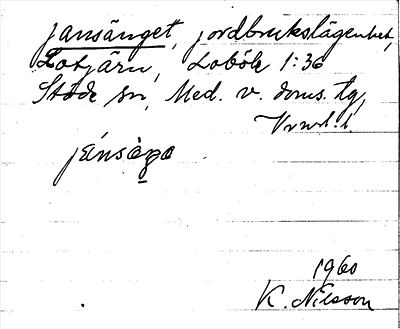 Jansänget, jordbrukslägenhet,
Lotjärn, Lobök 1:36
Stöde sn, Med. v. doms. tg
Vrnl. l.
jänsàga
1960
K. Nilsson